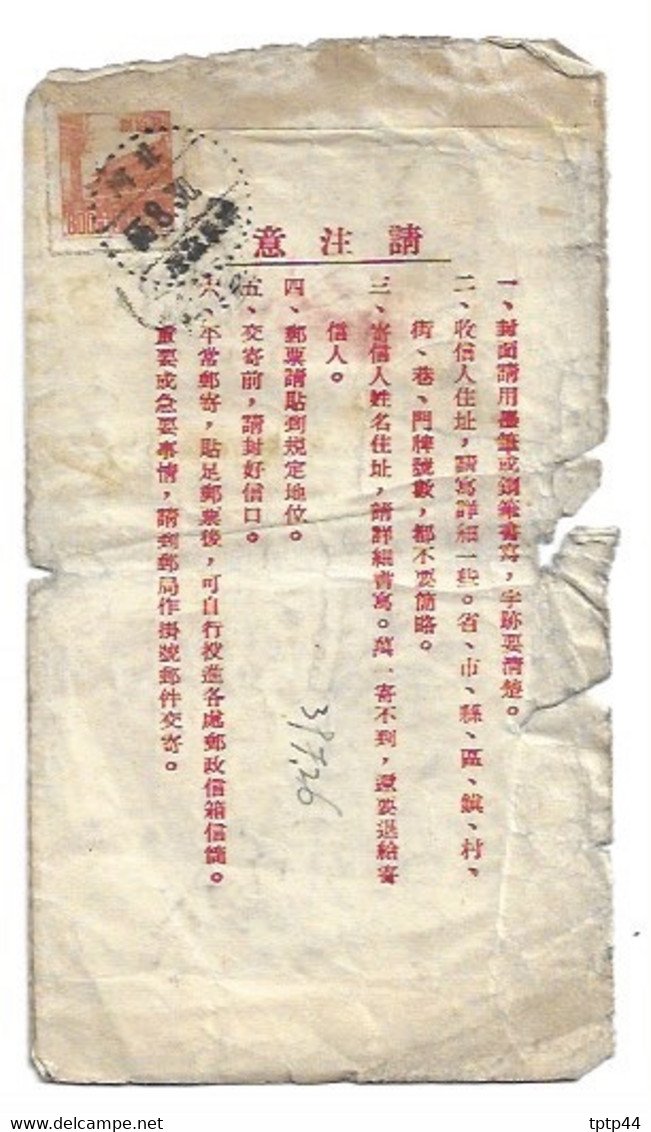 請注意
一、封面請用墨筆或鋼筆書寫，字跡要清楚。
二、收信人住址，請寫詳細一些。省、市、縣、區、鎮、村、
街、巷、門牌號數，都不要簡略。
三、寄信人姓名住址，請詳細書寫。萬一寄不到，還要退給寄
信人。
四、郵票請貼到規定地位。
五、交寄前，請封好信口。
六、平常郵寄，貼足郵票後，可自行投進各處郵政信箱信筒。
重要或急要事情，請到郵局作掛號郵件交寄。
800
8.30
tptp44